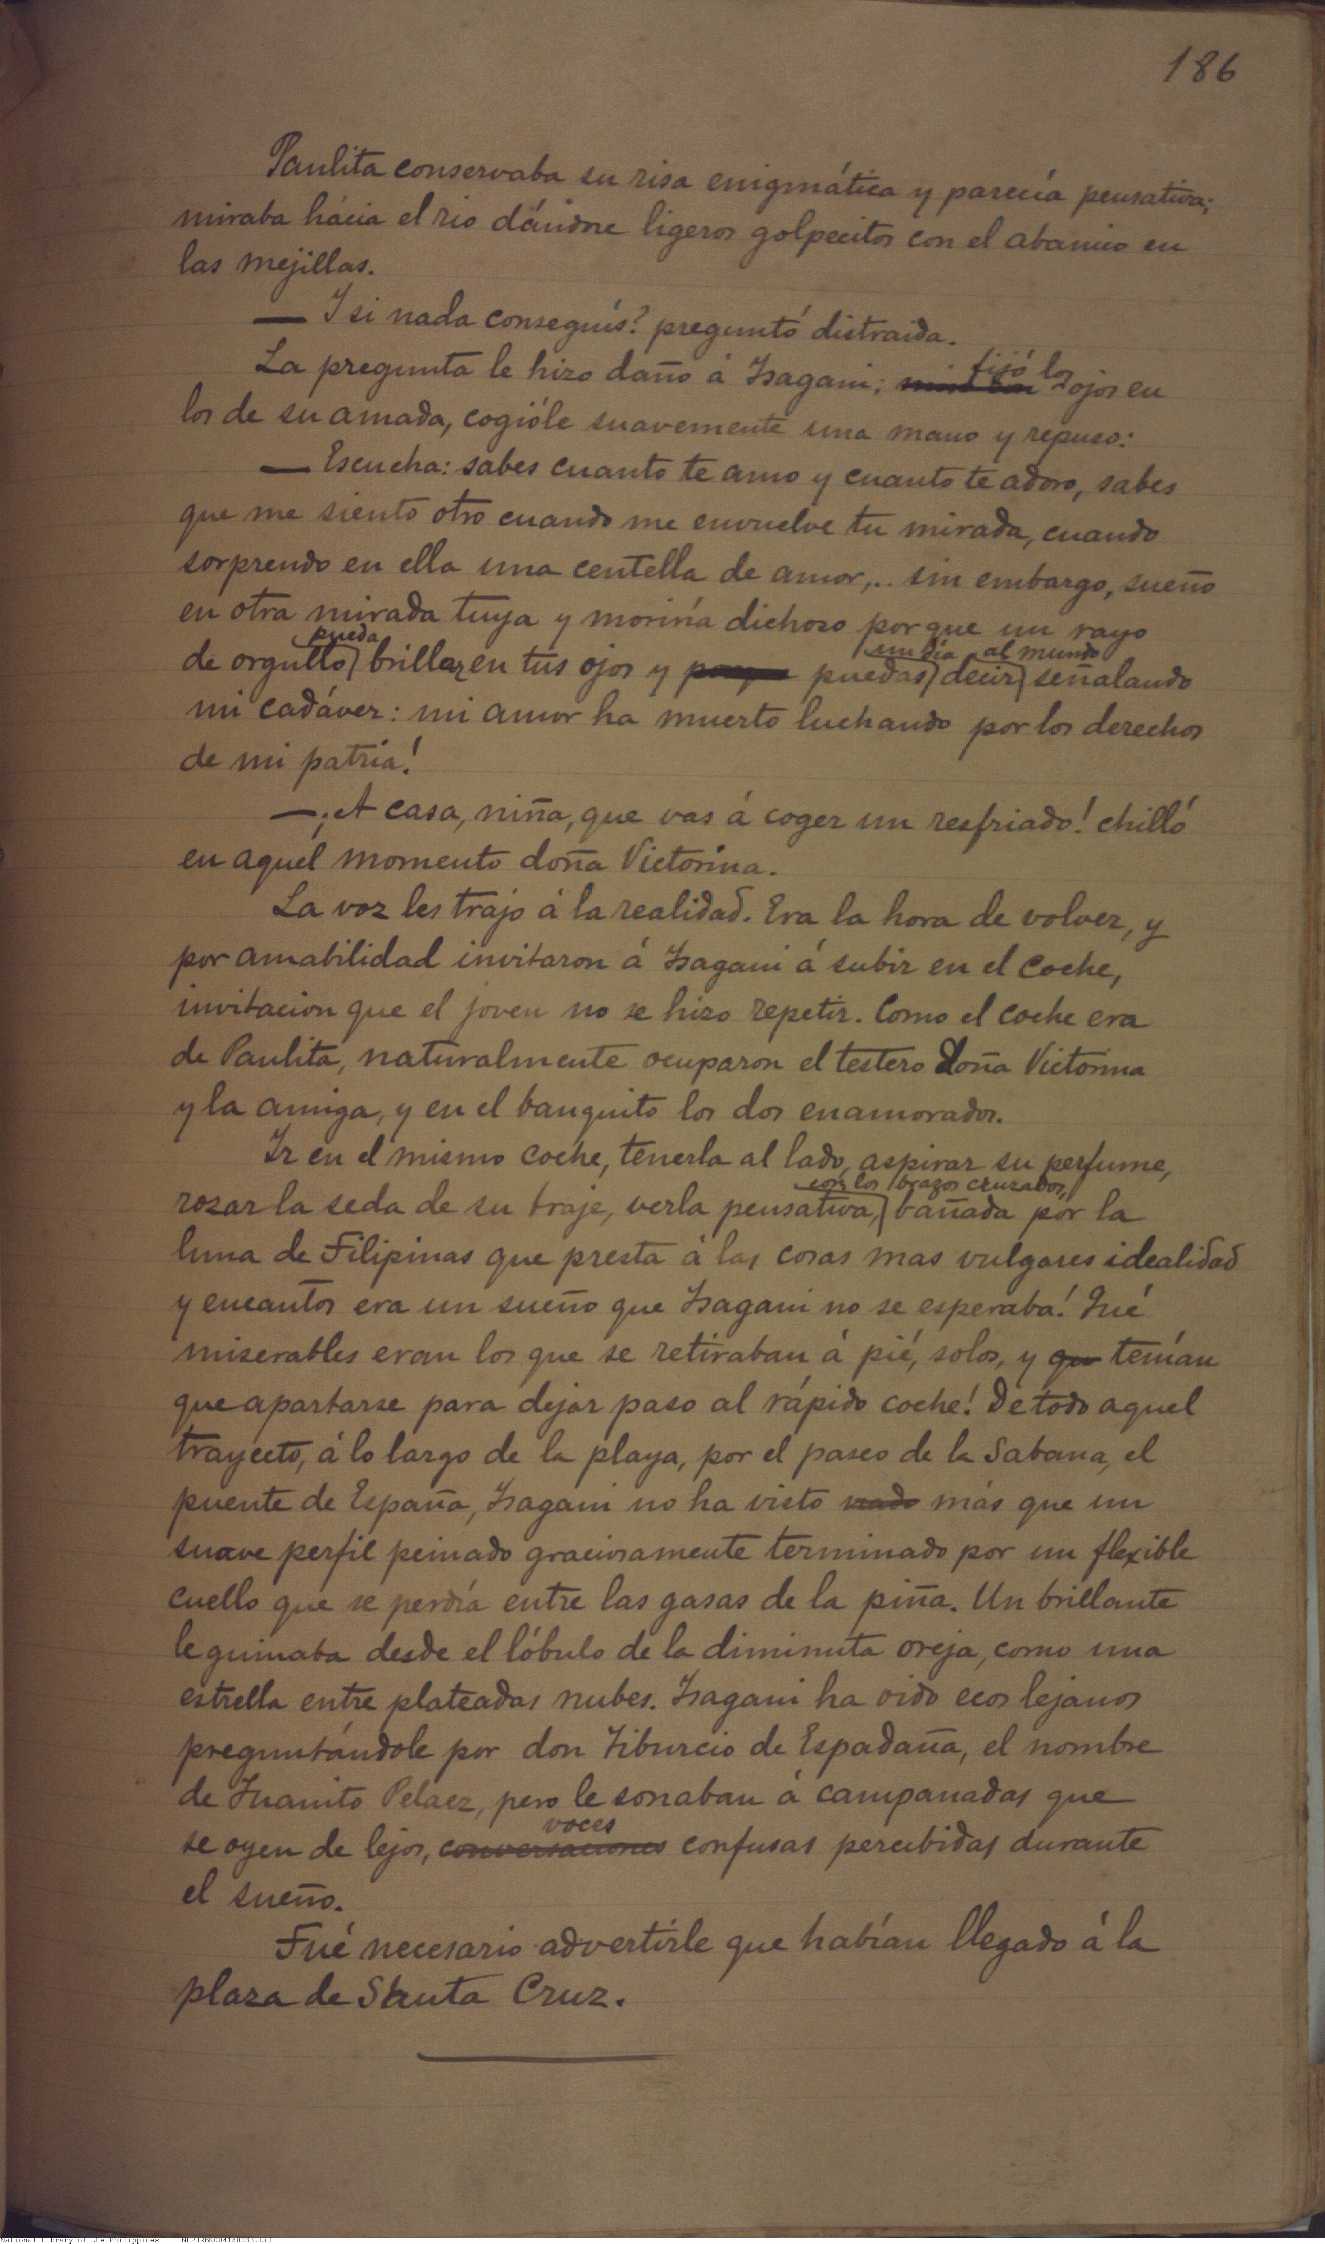 186
Paulita conservaba su risa enigmática y parecía pensativa;
miraba hácia el rio dándose ligeros golpecitos con el abanico en
las mejillas.
— Y si nada conseguís? preguntó distraida.
fijó los
La pregunta le hizo daño á Isagani; ojos en
los de su amada, cogióle suavemente una mano y repuso:
— Escucha: sabes cuanto te amo y cuanto te adoro, sabes
que me siento otro cuando me envuelve tu mirada, cuando
sorprendo en ella una centella de amor,.. sin embargo, sueño
en otra mirada tuya y moriría dichoso porque un rayo
pueda un día al mundo
de orgullo brillar en tus ojos y puedas decir señalando
mi cadáver: mi amor ha muerto luchando por los derechos
de mi patria!
—¡A casa, niña, que vas á coger un resfriado! chilló
en aquel momento doña Victorina.
La voz les trajo á la realidad. Era la hora de volver, y
por amabilidad invitaron á Isagani á subir en el coche,
invitacion que el joven no se hizo repetir. Como el coche era
de Paulita, naturalmente ocuparon el testero doña Victorina
y la amiga, y en el banquito los dos enamorados.
Ir en el mismo coche, tenerla al lado, aspirar su perfume,
con los brazos cruzados,
rozar la seda de su traje, verla pensativa, bañada por la
luna de Filipinas que presta á las cosas mas vulgares idealidad
y encantos era un sueño que Isagani no se esperaba! Qué
miserables eran los que se retiraban á pié, solos, y que tenían
que apartarse para dejar paso al rápido coche! De todo aquel
trayecto, á lo largo de la playa, por el paseo de la Sabana, el
puente de España, Isagani no ha visto nada más que un
suave perfil peinado graciosamente terminado por un flexible
cuello que se perdía entre las gasas de la piña. Un brillante
le guiñaba desde el lóbulo de la diminuta oreja, como una
estrella entre plateadas nubes. Isagani ha oido ecos lejanos
preguntándole por don Tiburcio de Espadaña, el nombre
de Juanito Pelaez, pero le sonaban á campanadas que
voces
se oyen de lejos, conversaciones confusas percibidas durante
el sueño.
Fué necesario advertirle que habían llegado á la
plaza de Santa Cruz.